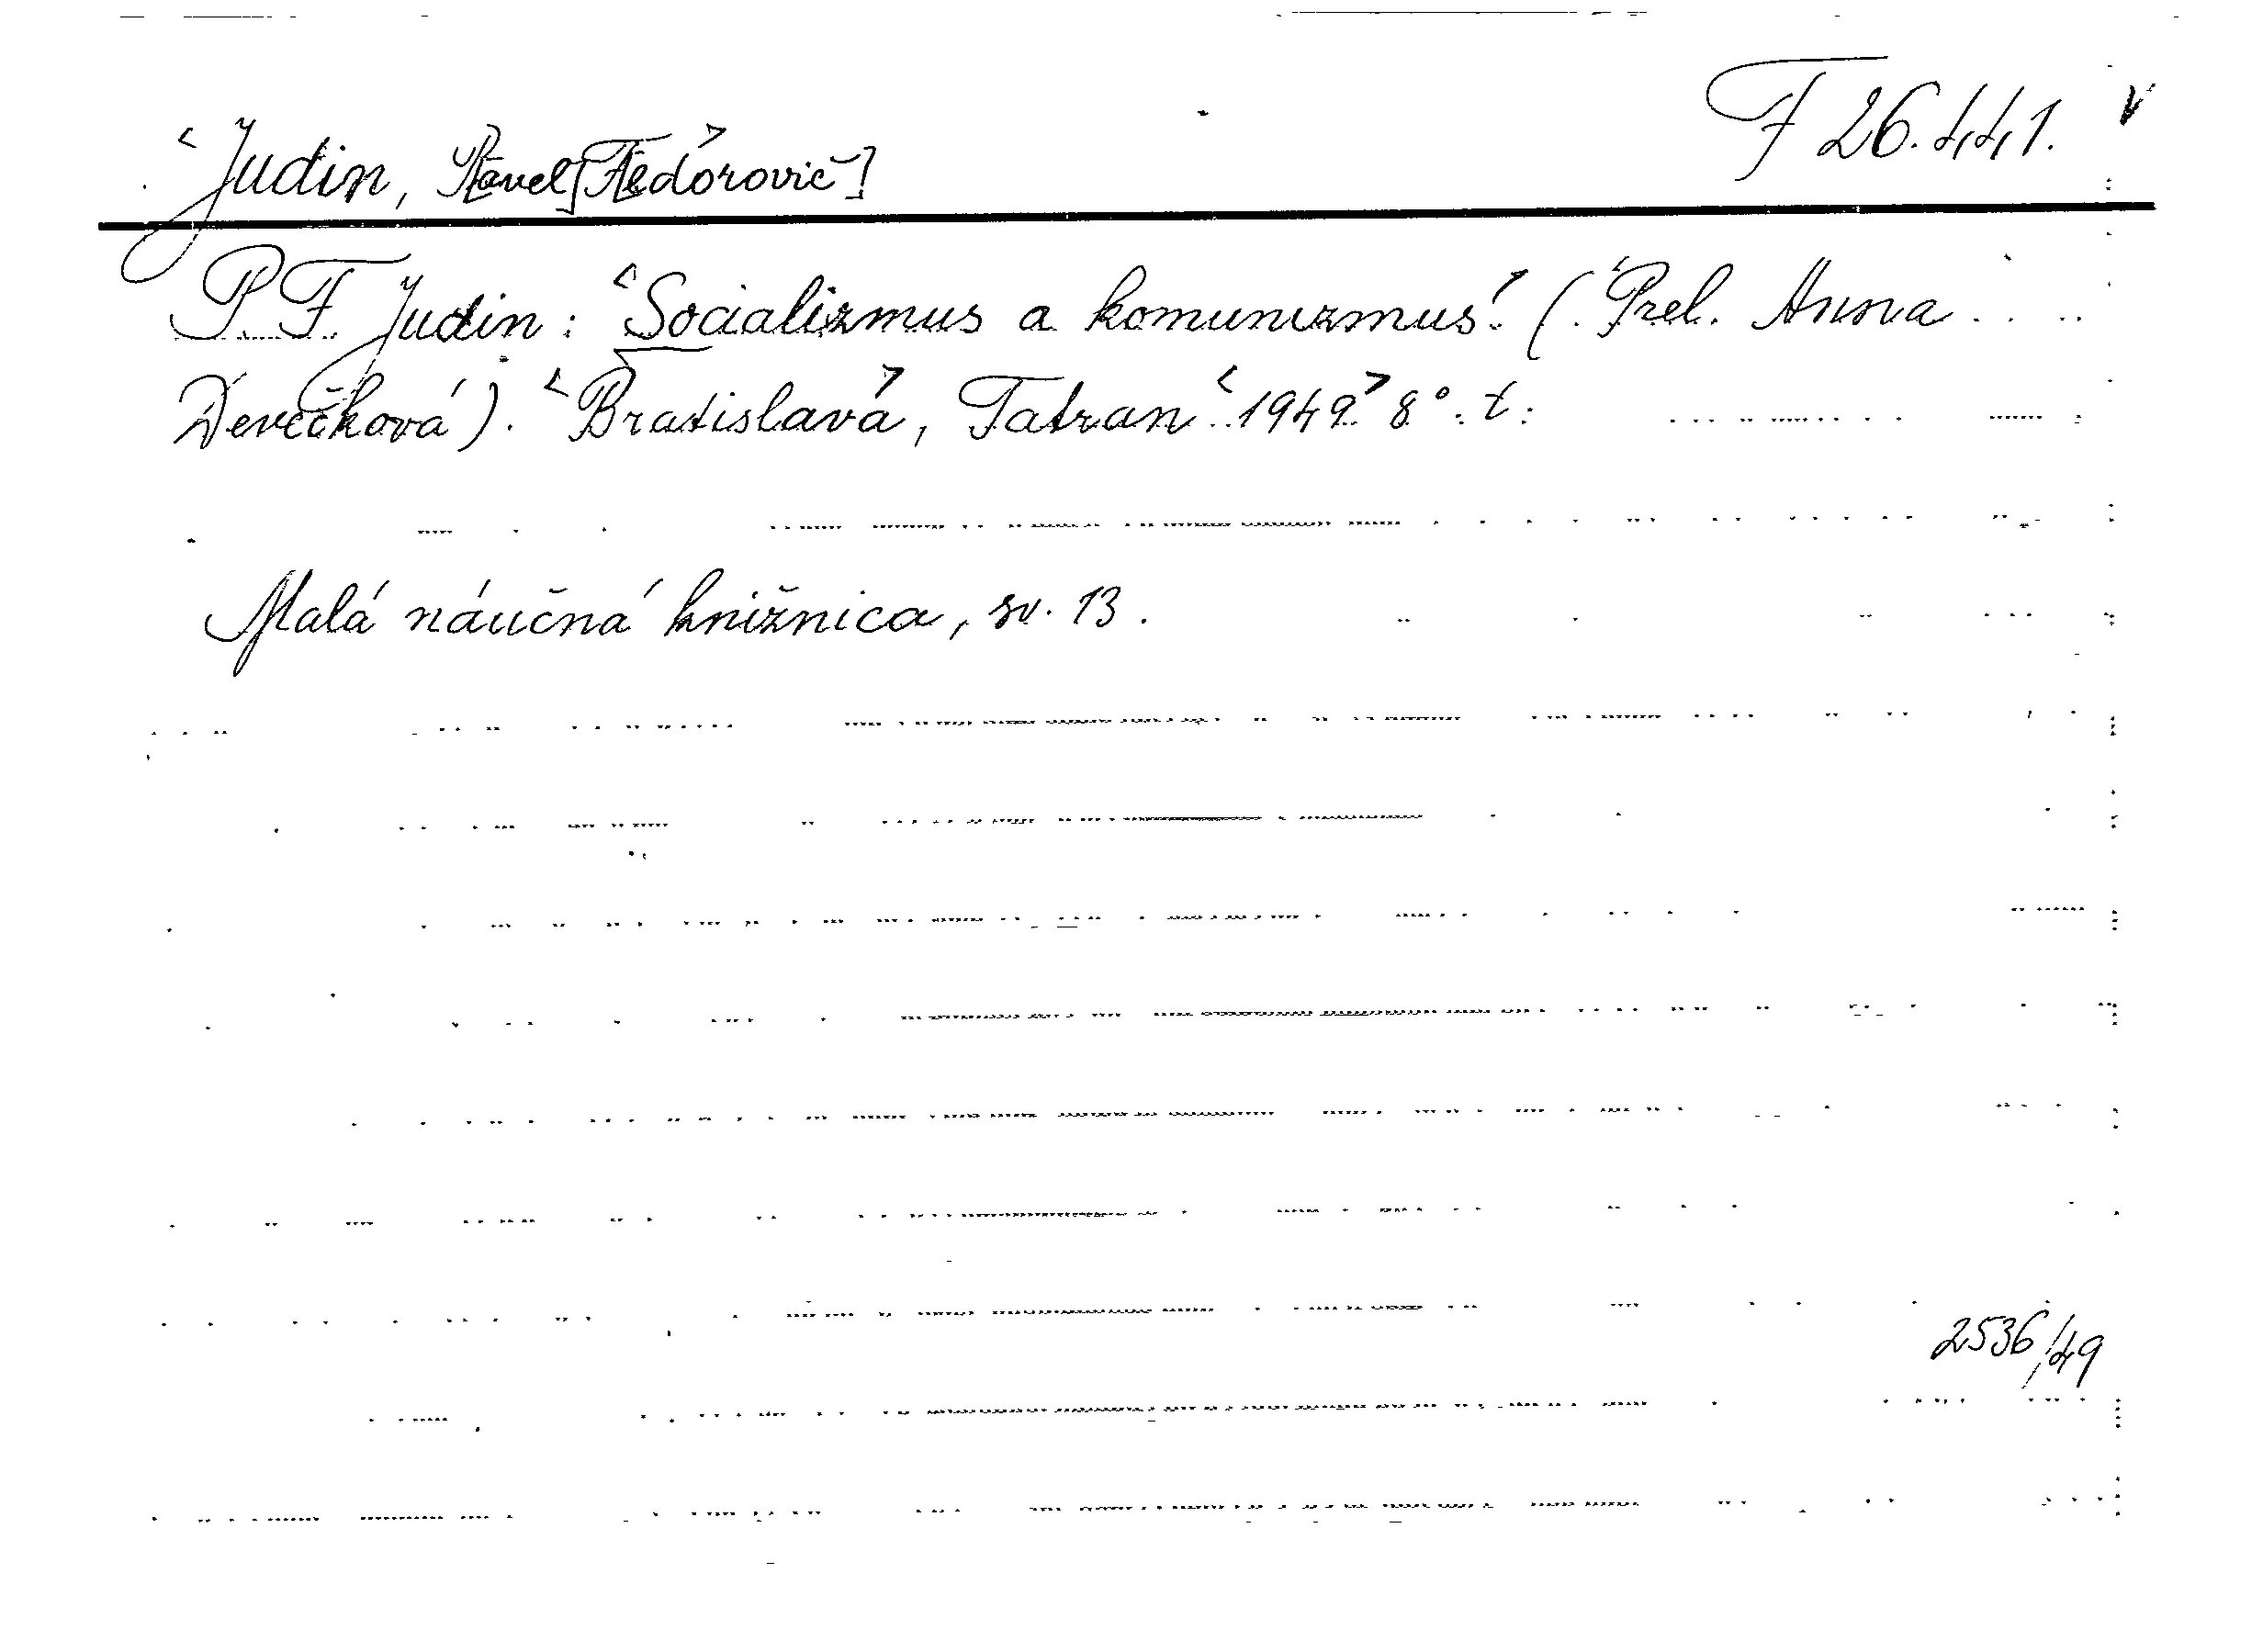 F 26.441. v
<Judin, P[avel] F[edorovič]>
P. F. Judin: <Socializmus a komunizmus.> (Prel. Anna
Devečková). <Bratislava>, Tatran <1949> 8°. t.
Malá náučná knižnica, sv. 13.
2536/49